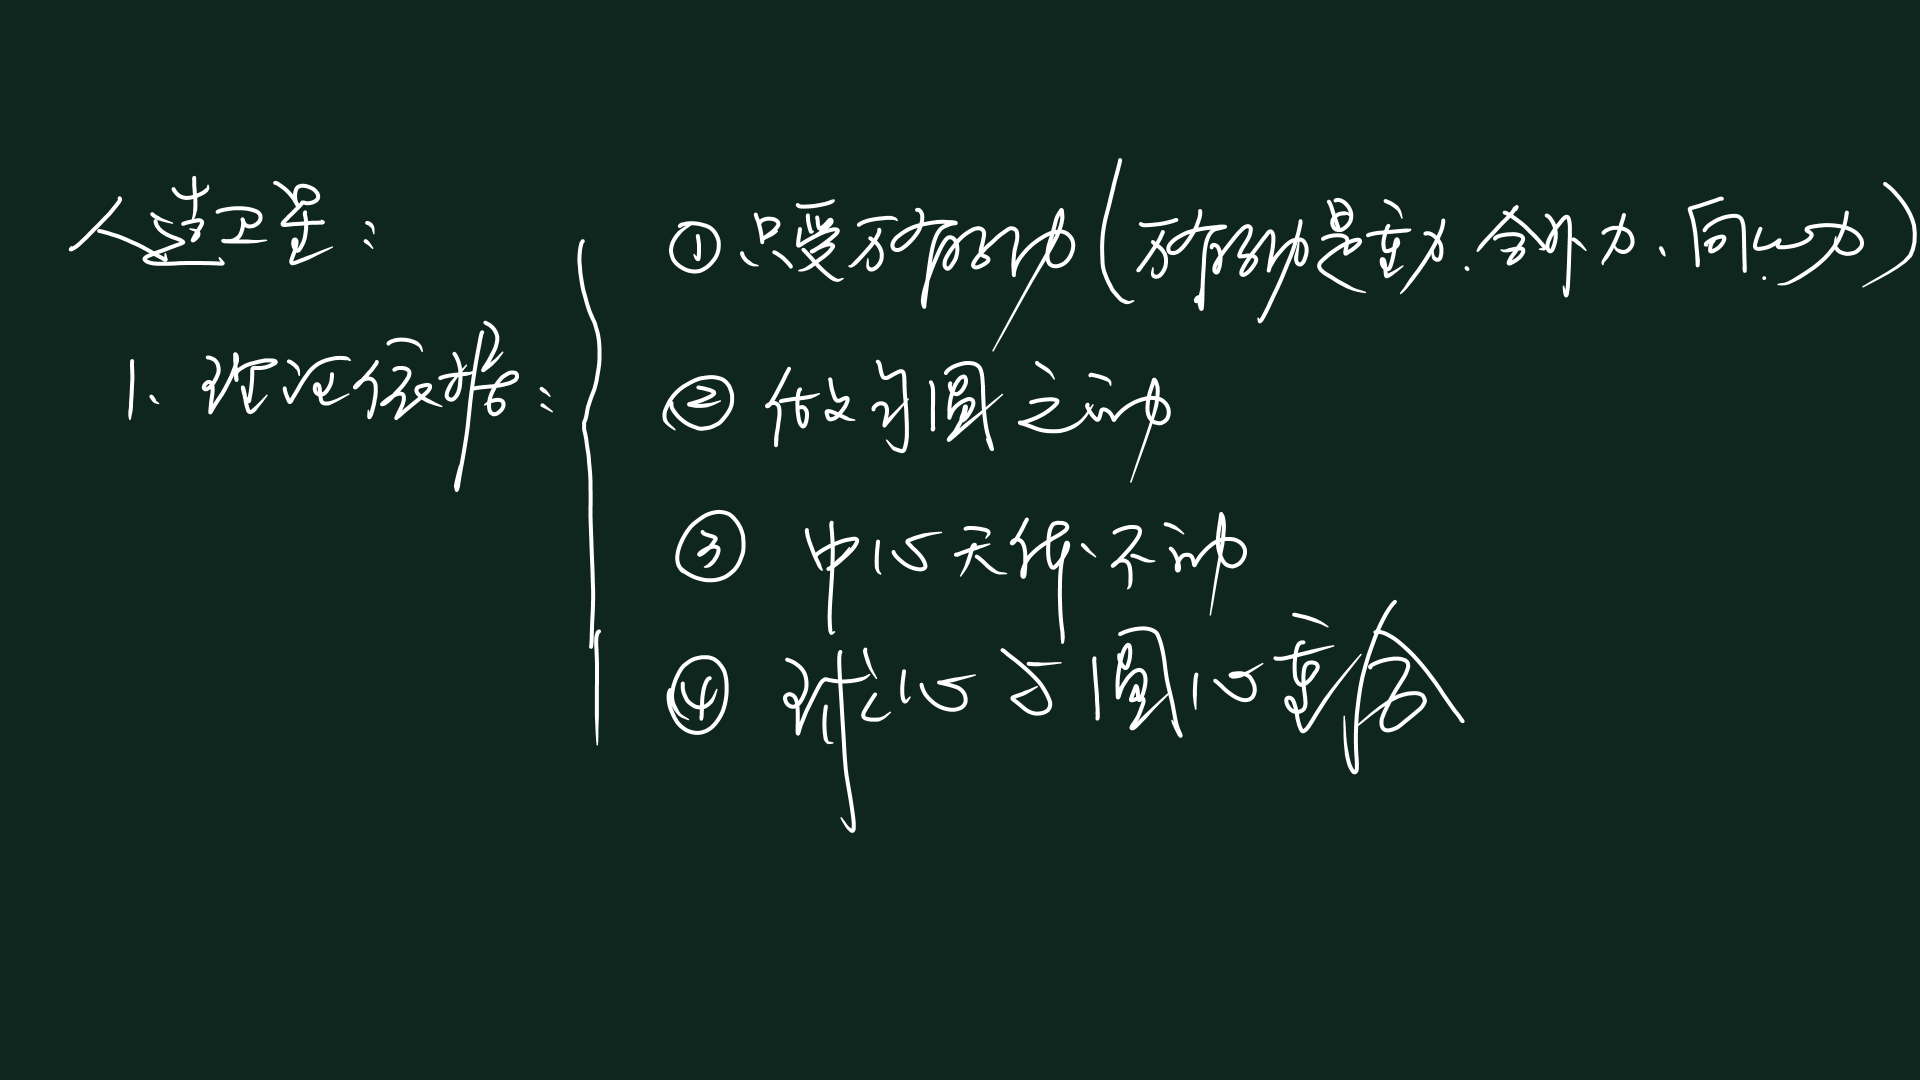 人造卫星：
1、理论依据：
①只受万有引力（万有引力是重力、合外力、向心力）
②做匀圆之动
③中心天体不动
④球心与圆心重合